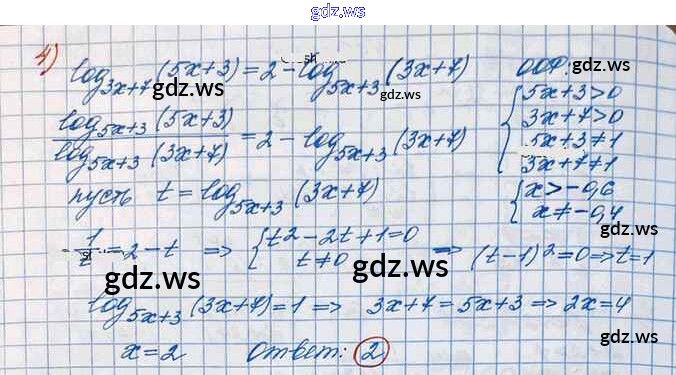 gdz.ws
4) log_{3x+7}(5x+3) = 2 - log_{5x+3}(3x+7)   ООФ:
gdz.ws gdz.ws gdz.ws
log_{5x+3}(5x+3) / log_{5x+3}(3x+7) = 2 - log_{5x+3}(3x+7)
{ 5x+3>0
3x+7>0
5x+3≠1
3x+7≠1
пусть t = log_{5x+3}(3x+7)
{ x>-0,6
x≠-0,4
gdz.ws gdz.ws
1/t = 2 - t => { t² - 2t + 1 = 0
t≠0 => (t-1)² = 0 => t = 1
gdz.ws gdz.ws
log_{5x+3}(3x+7) = 1 => 3x+7 = 5x+3 => 2x = 4
x = 2   Ответ: 2
gdz.ws gdz.ws